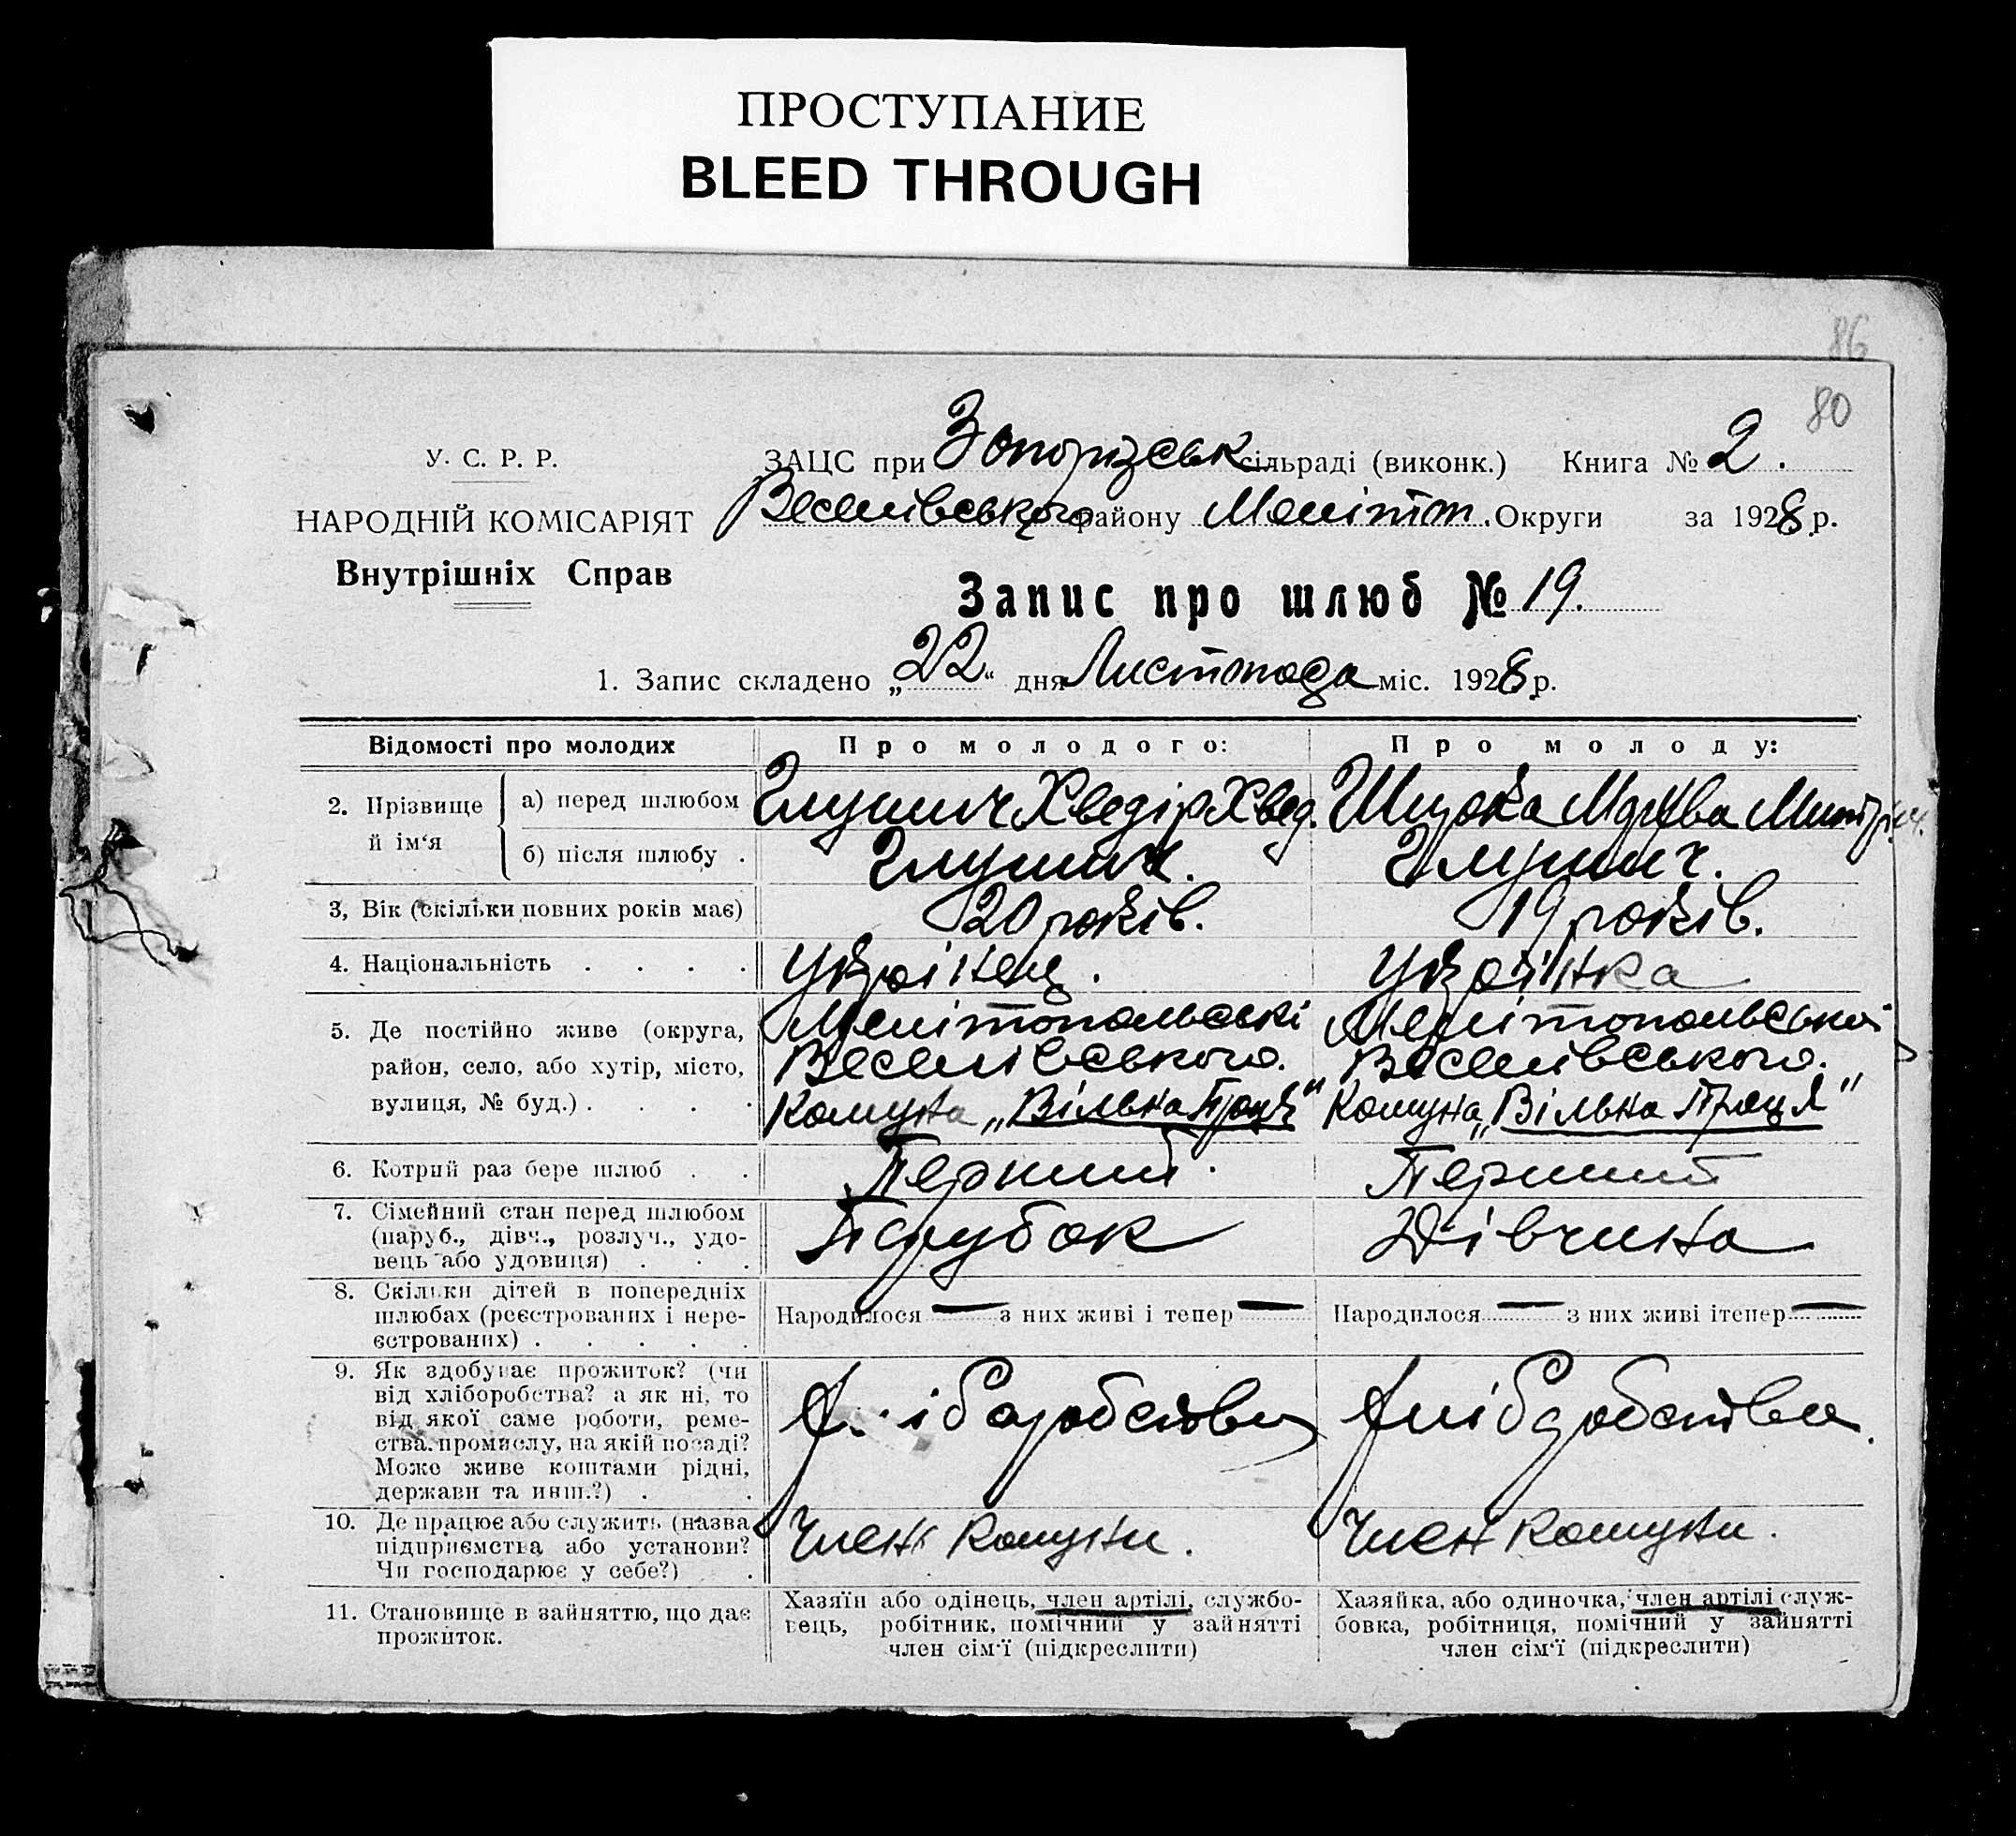 ПРОСТУПАНИЕ
BLEED THROUGH
86
80
У. С. Р. Р.
НАРОДНІЙ КОМІСАРІЯТ
Внутрішніх Справ
ЗАЦС при Запорізськ сільраді (виконк.) Книга № 2.
Веселівського району Меліт. Округи за 1928 р.
Запис про шлюб № 19.
1. Запис складено „22“ дня Листопада міс. 1928 р.
Відомості про молодих
Про молодого:
Про молоду:
2. Прізвище й ім'я
а) перед шлюбом
Глушич Хведір Хвед.
Мотр
б) після шлюбу .
Глушич.
Глушич.
3, Вік (скільки повних років має)
20 років.
19 років.
4. Національність . . . .
Україинец.
Украінка
5. Де постійно живе (округа,
район, село, або хутір, місто,
вулиця, № буд.) . . . .
Мелітопольські
Веселівського.
Комуна „Вільна Праця"
Мелітопольської
Веселівського.
Комуна „Вільна Праця"
6. Котрий раз бере шлюб . .
Перший.
Перший
7. Сімейний стан перед шлюбом
(паруб., дівч., розлуч., удо-
вець або удовиця) . . .
Парубок
Дівчина
8. Скільки дітей в попередніх
шлюбах (реєстрованих і нере-
єстрованих) . . . . .
Народилося — з них живі і тепер —
Народилося — з них живі ітепер —
9. Як здобуває прожиток? (чи
від хліборобства? а як ні, то
від якої саме роботи, реме-
ства, промислу, на якій посаді?
Може живе коштами рідні,
держави та инш.?) . .
хліборобства
хліборобства.
10. Де працює або служить (назва
підприємства або установи?
Чи господарює у себе?) .
Член Комуни.
Член Комуни.
11. Становище в зайняттю, що дає
прожиток.
Хазяїн або одінець, член артілі, службо-
вець, робітник, помічний у зайнятті
член сім'ї (підкреслити)
Хазяйка, або одиночка, член артілі служ-
бовка, робітниця, помічний у зайнятті
член сім'ї (підкреслити)